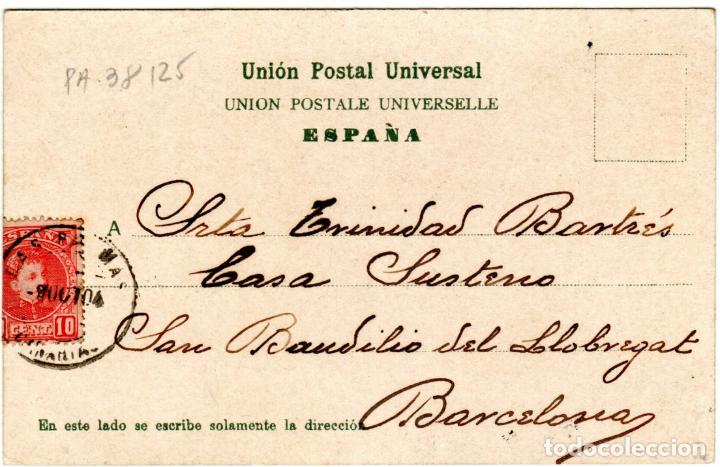 PA-38125
Unión Postal Universal
UNION POSTALE UNIVERSELLE
ESPAÑA
A Srta Trinidad Bartrés
Casa Susteno
San Baudilio del Llobregat
Barcelona
ESPAÑA
LAS PALMAS
OCT 04
CENT. 10
CANARIAS
En este lado se escribe solamente la dirección
todocoleccion.net